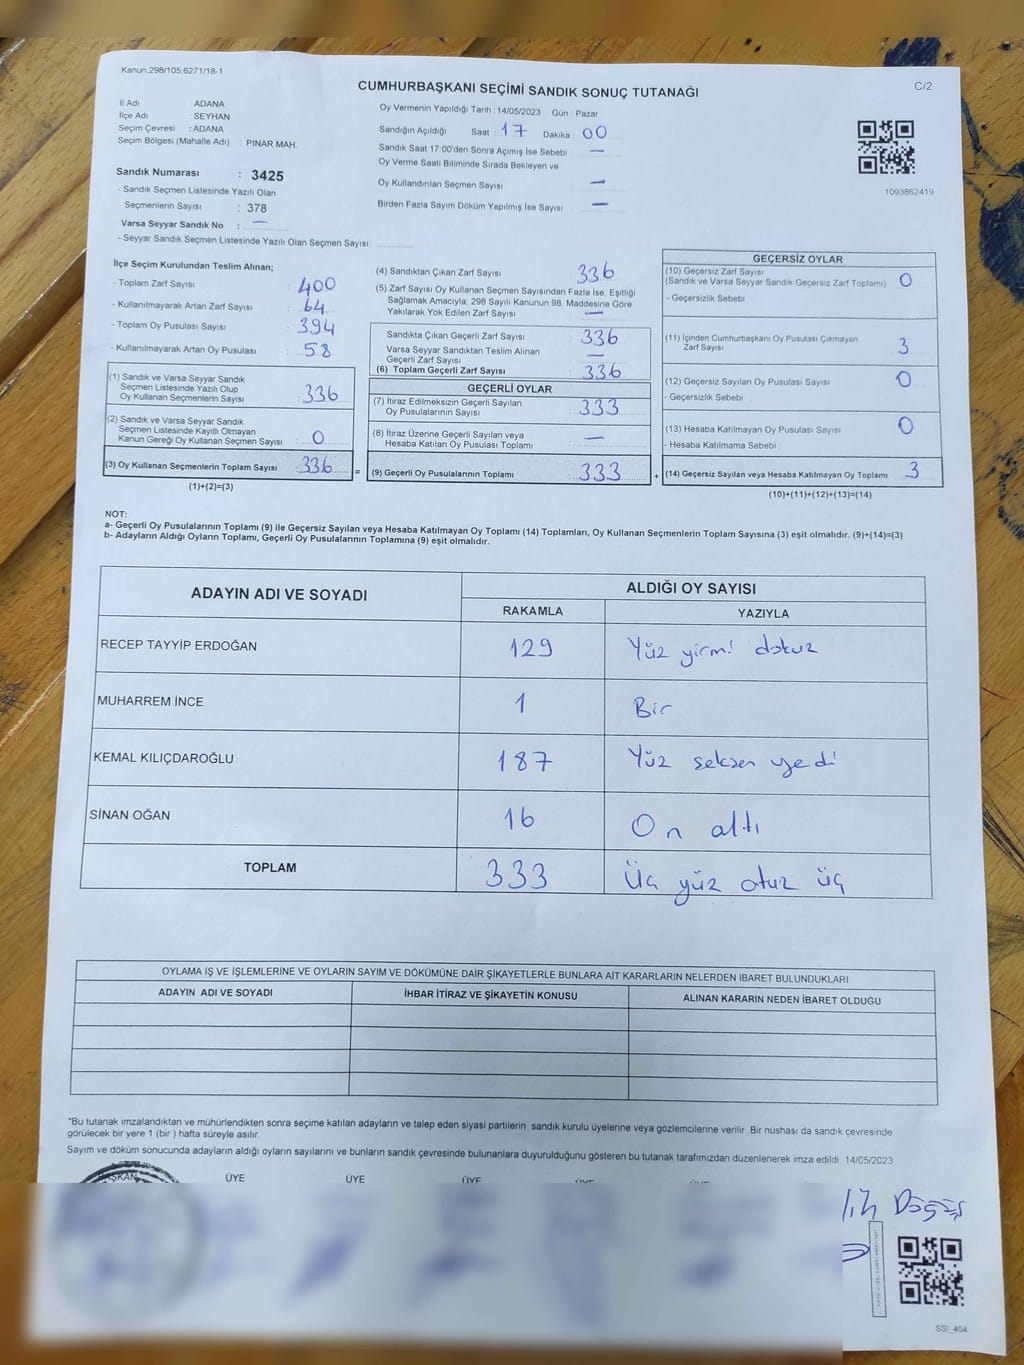 Kanun:298/105,6271/18-1
C/2
CUMHURBAŞKANI SEÇİMİ SANDIK SONUÇ TUTANAĞI
İl Adı : ADANA
İlçe Adı : SEYHAN
Seçim Çevresi : ADANA
Seçim Bölgesi (Mahalle Adı) : PINAR MAH.
Sandık Numarası : 3425
- Sandık Seçmen Listesinde Yazılı Olan
Seçmenlerin Sayısı : 378
Varsa Seyyar Sandık No : —
- Seyyar Sandık Seçmen Listesinde Yazılı Olan Seçmen Sayısı:
Oy Vermenin Yapıldığı Tarih : 14/05/2023 Gün : Pazar
Sandığın Açıldığı Saat : 17 Dakika : 00
Sandık Saat 17:00'den Sonra Açımış İse Sebebi : —
Oy Verme Saati Bitiminde Sırada Bekleyen ve
Oy Kullandırılan Seçmen Sayısı : —
Birden Fazla Sayım Döküm Yapılmış İse Sayısı : —
1093862419
İlçe Seçim Kurulundan Teslim Alınan;
- Toplam Zarf Sayısı : 400
- Kullanılmayarak Artan Zarf Sayısı : 64
- Toplam Oy Pusulası Sayısı : 394
- Kullanılmayarak Artan Oy Pusulası : 58
(1) Sandık ve Varsa Seyyar Sandık
Seçmen Listesinde Yazılı Olup
Oy Kullanan Seçmenlerin Sayısı : 336
(2) Sandık ve Varsa Seyyar Sandık
Seçmen Listesinde Kayıtlı Olmayan
Kanun Gereği Oy Kullanan Seçmen Sayısı : 0
(3) Oy Kullanan Seçmenlerin Toplam Sayısı : 336
(1)+(2)=(3)
=
(4) Sandıktan Çıkan Zarf Sayısı 336
(5) Zarf Sayısı Oy Kullanan Seçmen Sayısından Fazla İse, Eşitliği
Sağlamak Amacıyla; 298 Sayılı Kanunun 98. Maddesine Göre
Yakılarak Yok Edilen Zarf Sayısı : —
Sandıkta Çıkan Geçerli Zarf Sayısı : 336
Varsa Seyyar Sandıktan Teslim Alınan
Geçerli Zarf Sayısı : —
(6) Toplam Geçerli Zarf Sayısı : 336
GEÇERLİ OYLAR
(7) İtiraz Edilmeksizin Geçerli Sayılan
Oy Pusulalarının Sayısı : 333
(8) İtiraz Üzerine Geçerli Sayılan veya
Hesaba Katılan Oy Pusulası Toplamı : —
(9) Geçerli Oy Pusulalarının Toplamı : 333
+
GEÇERSİZ OYLAR
(10) Geçersiz Zarf Sayısı
(Sandık ve Varsa Seyyar Sandık Geçersiz Zarf Toplamı) : 0
- Geçersizlik Sebebi :
(11) İçinden Cumhurbaşkanı Oy Pusulası Çıkmayan
Zarf Sayısı : 3
(12) Geçersiz Sayılan Oy Pusulası Sayısı : 0
- Geçersizlik Sebebi :
(13) Hesaba Katılmayan Oy Pusulası Sayısı : 0
- Hesaba Katılmama Sebebi :
(14) Geçersiz Sayılan veya Hesaba Katılmayan Oy Toplamı : 3
(10)+(11)+(12)+(13)=(14)
NOT:
a- Geçerli Oy Pusulalarının Toplamı (9) ile Geçersiz Sayılan veya Hesaba Katılmayan Oy Toplamı (14) Toplamları, Oy Kullanan Seçmenlerin Toplam Sayısına (3) eşit olmalıdır. (9)+(14)=(3)
b- Adayların Aldığı Oyların Toplamı, Geçerli Oy Pusulalarının Toplamına (9) eşit olmalıdır.
ADAYIN ADI VE SOYADI
ALDIĞI OY SAYISI
RAKAMLA YAZIYLA
RECEP TAYYİP ERDOĞAN 129 Yüz yirmi dokuz
MUHARREM İNCE 1 Bir
KEMAL KILIÇDAROĞLU 187 Yüz seksen yedi
SİNAN OĞAN 16 On altı
TOPLAM 333 Üç yüz otuz üç
OYLAMA İŞ VE İŞLEMLERİNE VE OYLARIN SAYIM VE DÖKÜMÜNE DAİR ŞİKAYETLERLE BUNLARA AİT KARARLARIN NELERDEN İBARET BULUNDUKLARI
ADAYIN ADI VE SOYADI İHBAR İTİRAZ VE ŞİKAYETİN KONUSU ALINAN KARARIN NEDEN İBARET OLDUĞU
*Bu tutanak imzalandıktan ve mühürlendikten sonra seçime katılan adayların ve talep eden siyasi partilerin sandık kurulu üyelerine veya gözlemcilerine verilir. Bir nushası da sandık çevresinde
görülecek bir yere 1 (bir ) hafta süreyle asılır.
Sayım ve döküm sonucunda adayların aldığı oyların sayılarını ve bunların sandık çevresinde bulunanlara duyurulduğunu gösteren bu tutanak tarafımızdan düzenlenerek imza edildi. 14/05/2023
BAŞKAN ÜYE ÜYE ÜYE ÜYE ÜYE
SSI_404